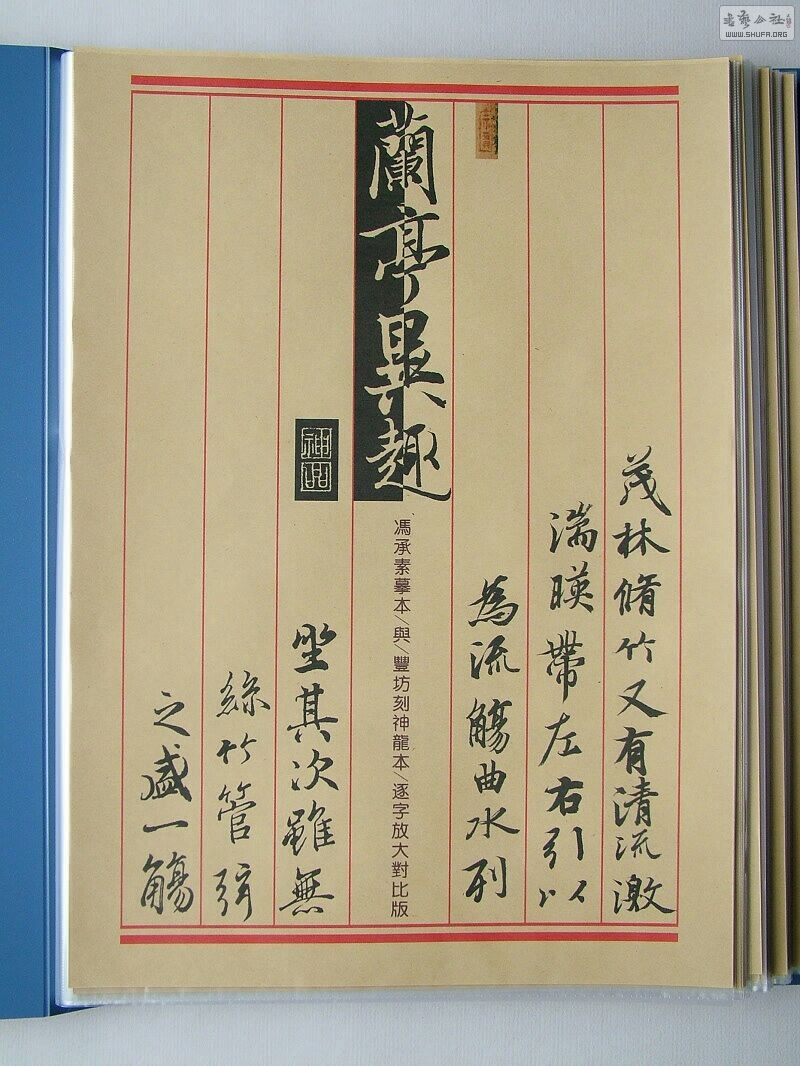 茂林脩竹又有清流激
湍暎帶左右引以
為流觴曲水列
蘭亭異趣
馮承素摹本\與\豐坊刻神龍本\逐字放大對比版
神品
坐其次雖無
絲竹管弦
之盛一觴
書藝公社
WWW.SHUFA.ORG